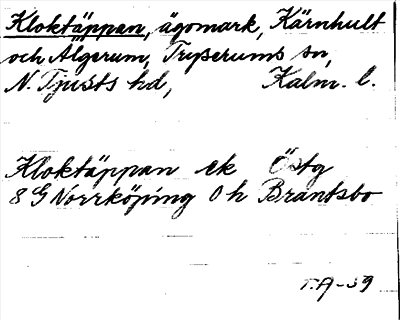 Kloktäppan, ägomark, Kärnhult
och Älgerum, Tryserums sn,
N. Tjusts hd, Kalm. l.
Kloktäppan ek Östg
8 G Norrköping 0 h Brantsbo
T.A-39